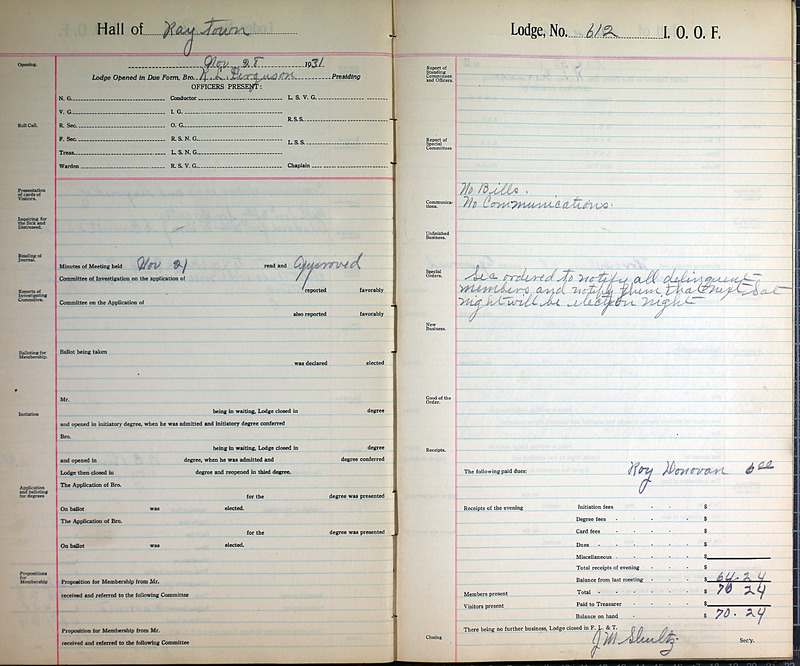 Hall of Ray town
Opening.
Nov 28 1931
Lodge Opened in Due Form, Bro. R. L. Ferguson Presiding
OFFICERS PRESENT:
N. G. Conductor L. S. V. G.
V. G. I. G.
R. S. S.
Roll Call.
R. Sec. O. G.
F. Sec. R. S. N. G.
L. S. S.
Treas. L. S. N. G.
Warden R. S. V. G. Chaplain
Presentation of cards of Visitors.
Inquiring for the Sick and Distressed.
Reading of Journal.
Minutes of Meeting held Nov 21 read and approved
Committee of Investigation on the application of
Reports of Investigating Committee.
reported favorably
Committee on the Application of
also reported favorably
Balloting for Membership.
Ballot being taken
was declared elected
Mr.
being in waiting, Lodge closed in degree
Initiation
and opened in initiatory degree, when he was admitted and initiatory degree conferred
Bro.
being in waiting, Lodge closed in degree
and opened in degree, when he was admitted and degree conferred
Lodge then closed in degree and reopened in third degree.
Application and balloting for degrees
The Application of Bro.
for the degree was presented
On ballot was elected.
The Application of Bro.
for the degree was presented
On ballot was elected.
Propositions for Membership
Proposition for Membership from Mr.
received and referred to the following Committee
Proposition for Membership from Mr.
received and referred to the following Committee
Lodge, No. 612 I. O. O. F.
Report of Standing Committees and Officers.
Report of Special Committees
No Bills.
Communications.
No Communications.
Unfinished Business.
Special Orders.
Sec ordered to notify all delinquent
members and notify them that next Sat
night will be election night
New Business.
Good of the Order.
Receipts.
The following paid dues: Roy Donovan 6 00
Receipts of the evening Initiation fees $
Degree fees $
Card fees $
Dues $
Miscellaneous $
Total receipts of evening $
Balance from last meeting $ 64.24
Members present Total $ 70 24
Visitors present Paid to Treasurer $
Balance on hand $ 70.24
There being no further business, Lodge closed in F. L. & T.
Closing J M Shultz Sec'y.